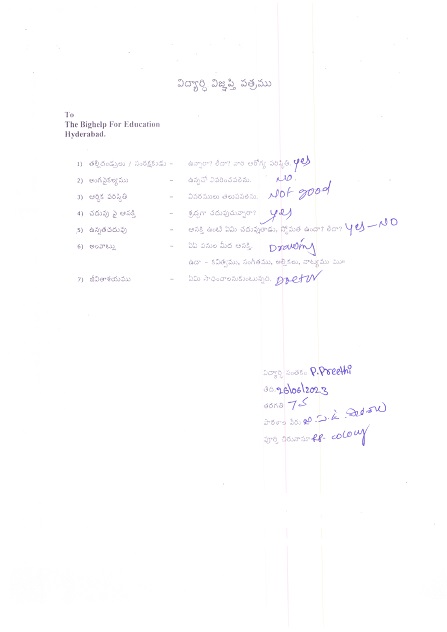 విద్యార్థి విజ్ఞప్తి పత్రము
To
The Bighelp For Education
Hyderabad.
1) తల్లిదండ్రులు / సంరక్షకుడు – ఉన్నారా? లేదా? వారి ఆరోగ్య పరిస్థితి yes
2) అంగవైకల్యము – ఉన్నచో వివరించవలెను. NO
3) ఆర్థిక పరిస్థితి – వివరములు తెలుపవలెను. Not good
4) చదువు పై ఆసక్తి – శ్రద్ధగా చదువుచున్నారా? yes
5) ఉన్నతచదువు – ఆసక్తి ఉంటే ఏమి చదువుతాడు. స్తోమత ఉందా? లేదా? yes – NO
6) అలవాట్లు – ఏఏ పనుల మీద ఆసక్తి Drawing
ఉదా – కవిత్వము, సంగీతము, ఆటలు, నాట్యము
7) జీవితాశయము – ఏమి సాధించాలనుకుంటున్నారు. Doctor
విద్యార్థి సంతకం P.Preethi
తేది 26/06/2023
తరగతి 7
పాఠశాల పేరు
పూర్తి చిరునామా colony